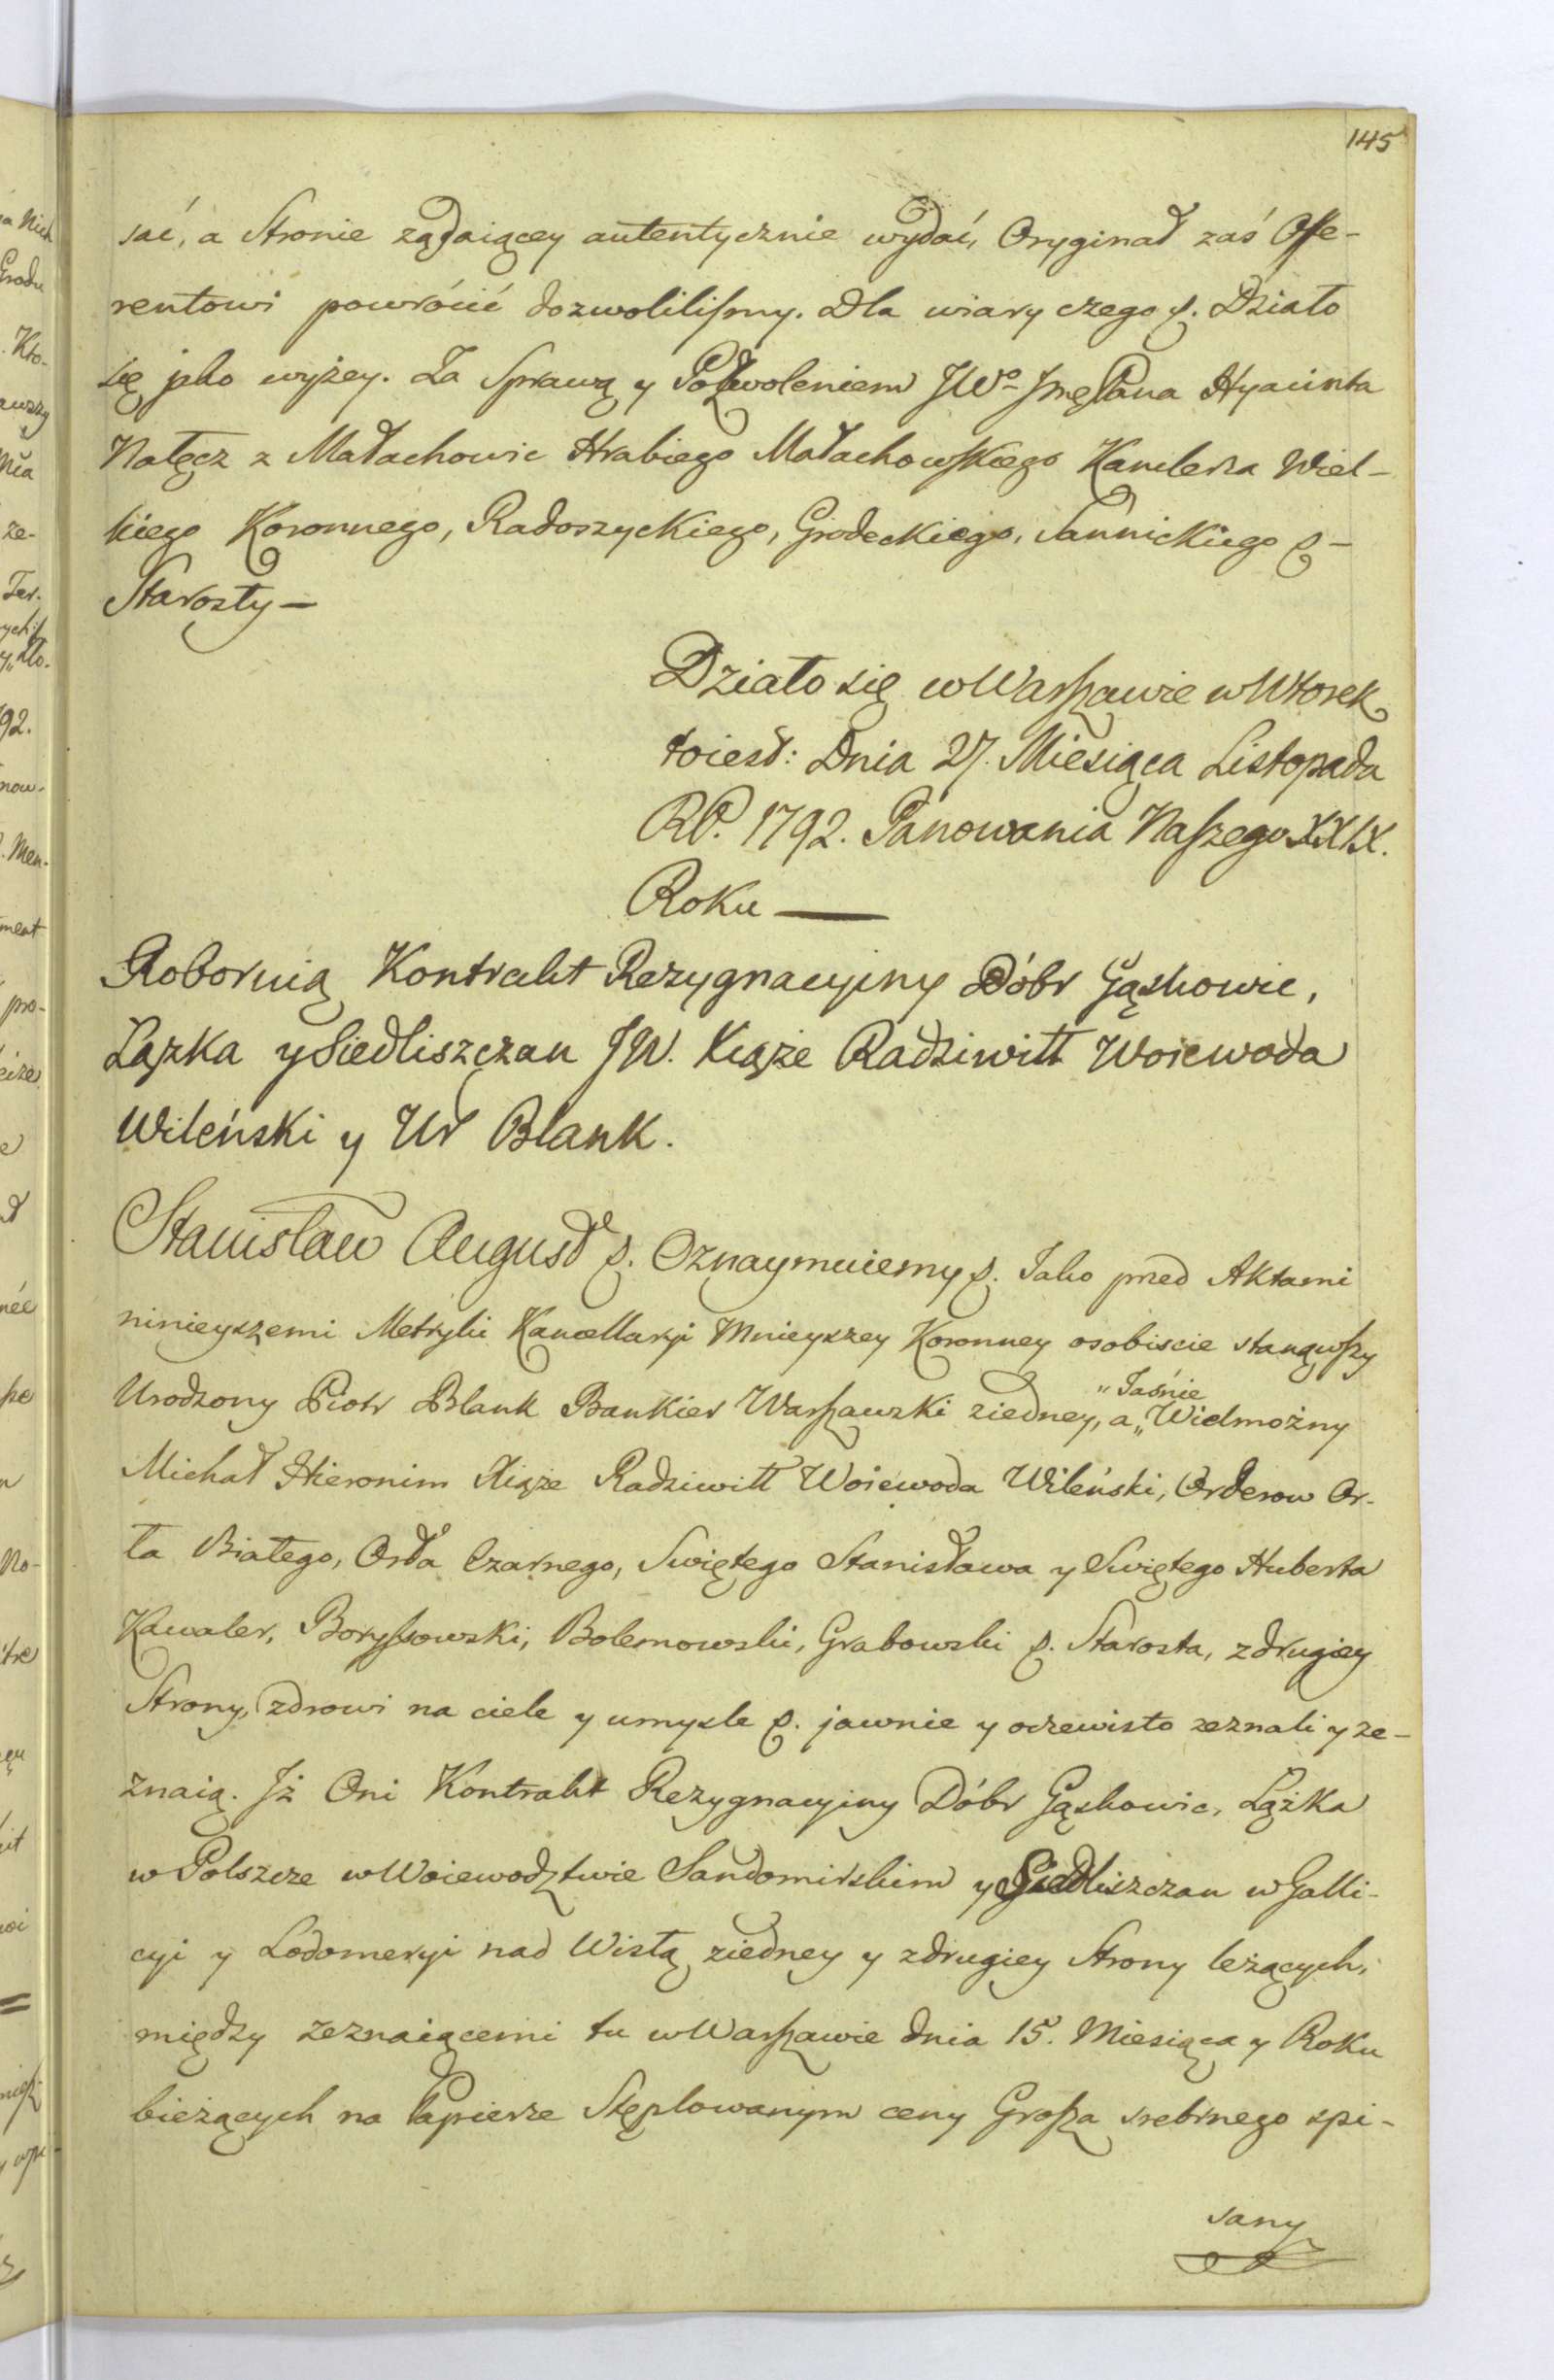 145
sać, a Stronie żądaiącey autentycznie wydać, Oryginał zaś Offe-
rentowi powrócić dozwoliliſmy. Dla wiary czego p. Działo
się jako wyżey. Za Sprawą y Pozwoleniem JWo Jmę Pana Hyacinta
Nałęcz z Małachowic Hrabiego Małachowſkiego Kanclerza Wiel-
kiego Koronnego, Radoszyckiego, Grodeckiego, Sannickiego p-
Starosty—
Działo się w Warſzawie w Wtorek
toiest: Dnia 27. Miesiąca Listopada
RP. 1792. Panowania Naſzego XXIX.
Roku —
Roboruią Kontrakt Rezygnacyiny Dóbr Gąskowic,
Lązka y Siedliszczan JW. Xiąże Radziwiłł Woiewoda
Wileński y Ur Blank.
Stanisław August p. Oznaymuiemy p. Iako przed Aktami
ninieyszemi Metryki Kancellaryi Mnieyszey Koronney osobiscie stanąwſzy
Urodzony Piotr Blank Bankier Warſzawski ziedney, a „Wielmożny
„Iaśnie
Michał Hieronim Xiąże Radziwiłł Woiewoda Wileński, Orderow Or-
ła Białego, Orła Czarnego, Swiętego Stanisława y Swiętego Huberta
Kawaler, Boryſsowski, Bolemowski, Grabowski p. Starosta, zdrugiey
Strony, zdrowi na ciele y umysle p. jawnie y oczewisto zeznali y ze-
znaią. Jż Oni Kontrakt Rezygnacyiny Dóbr Gąskowic, Lążka
w Polszcze w Woiewodztwie Sandomirskim y Siedliszczan w Galli-
cyi y Lodomeryi nad Wisłą ziedney y zdrugiey Strony leżących,
między zeznaiącemi tu w Warſzawie dnia 15. Miesiąca y Roku
bieżących na Papierze Stęplowanym ceny Groſza srebrnego spi-
sany